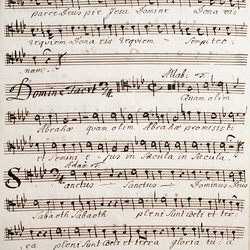 parce Deus pie Jesu Domine Dona eis
requiem Dona eis requiem Sempiter
nam.
Allab:
Domine Tacet Quam olim
Abrahæ quam olim Abrahæ promisisti
et Semini ejus in Sæcula in Sæcula.
Adao
Sanctus Sanctus Dominus Deus
Sabaoth Sabaoth pleni Sunt Cœli et ter:
ra pleni Sunt Cœli et terra gloria tu